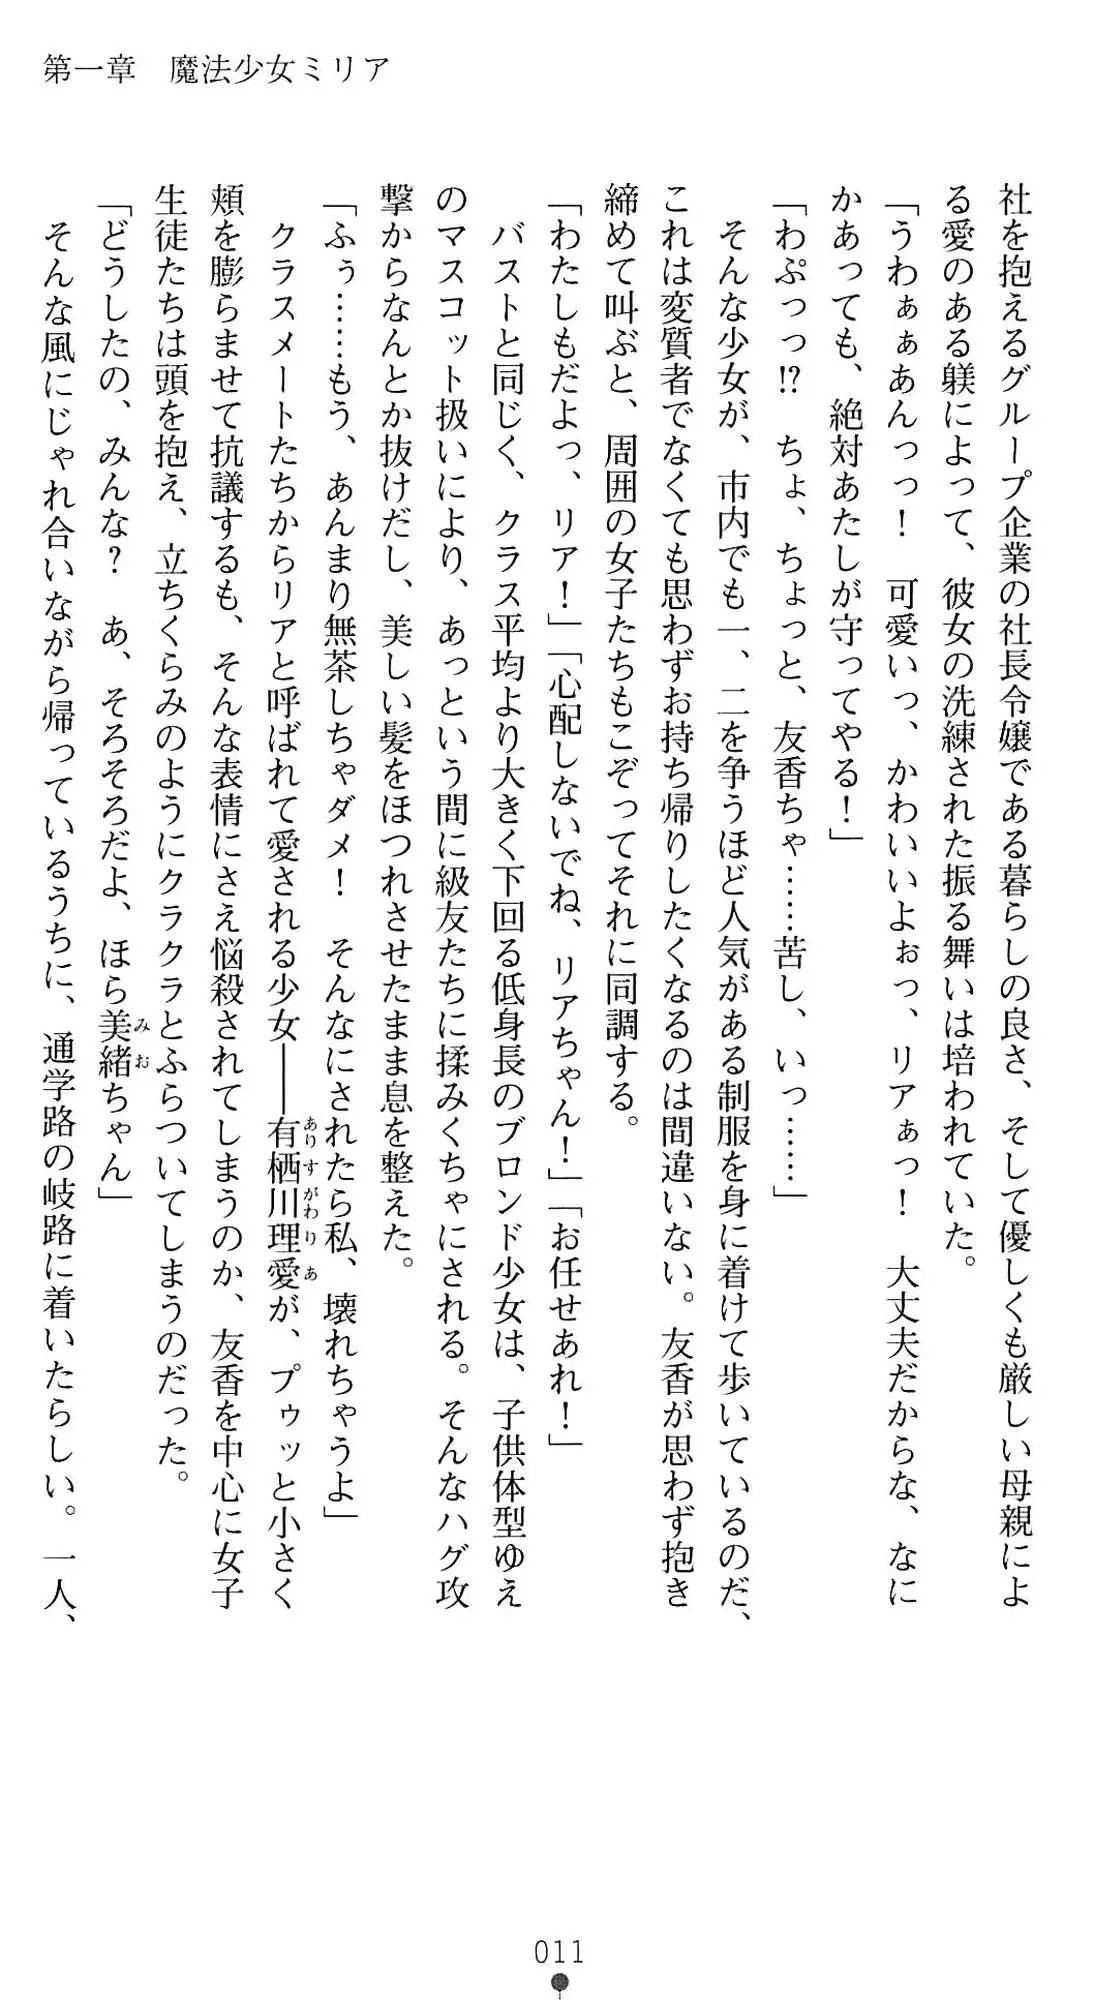 第一章　魔法少女ミリア
社を抱えるグループ企業の社長令嬢である暮らしの良さ、そして優しくも厳しい母親によ
る愛のある躾によって、彼女の洗練された振る舞いは培われていた。
「うわぁぁあんっっ！　可愛いっ、かわいいよぉっ、リアぁっ！　大丈夫だからな、なに
かあっても、絶対あたしが守ってやる！」
「わぷっっ!?　ちょ、ちょっと、友香ちゃ……苦し、いっ……」
そんな少女が、市内でも一、二を争うほど人気がある制服を身に着けて歩いているのだ、
これは変質者でなくても思わずお持ち帰りしたくなるのは間違いない。友香が思わず抱き
締めて叫ぶと、周囲の女子たちもこぞってそれに同調する。
「わたしもだよっ、リア！」「心配しないでね、リアちゃん！」「お任せあれ！」
バストと同じく、クラス平均より大きく下回る低身長のブロンド少女は、子供体型ゆえ
のマスコット扱いにより、あっという間に級友たちに揉みくちゃにされる。そんなハグ攻
撃からなんとか抜けだし、美しい髪をほつれさせたまま息を整えた。
「ふぅ……もう、あんまり無茶しちゃダメ！　そんなにされたら私、壊れちゃうよ」
クラスメートたちからリアと呼ばれて愛される少女――有栖川理愛が、プゥッと小さく
頬を膨らませて抗議するも、そんな表情にさえ悩殺されてしまうのか、友香を中心に女子
生徒たちは頭を抱え、立ちくらみのようにクラクラとふらついてしまうのだった。
「どうしたの、みんな？　あ、そろそろだよ、ほら美緒ちゃん」
そんな風にじゃれ合いながら帰っているうちに、通学路の岐路に着いたらしい。一人、
011